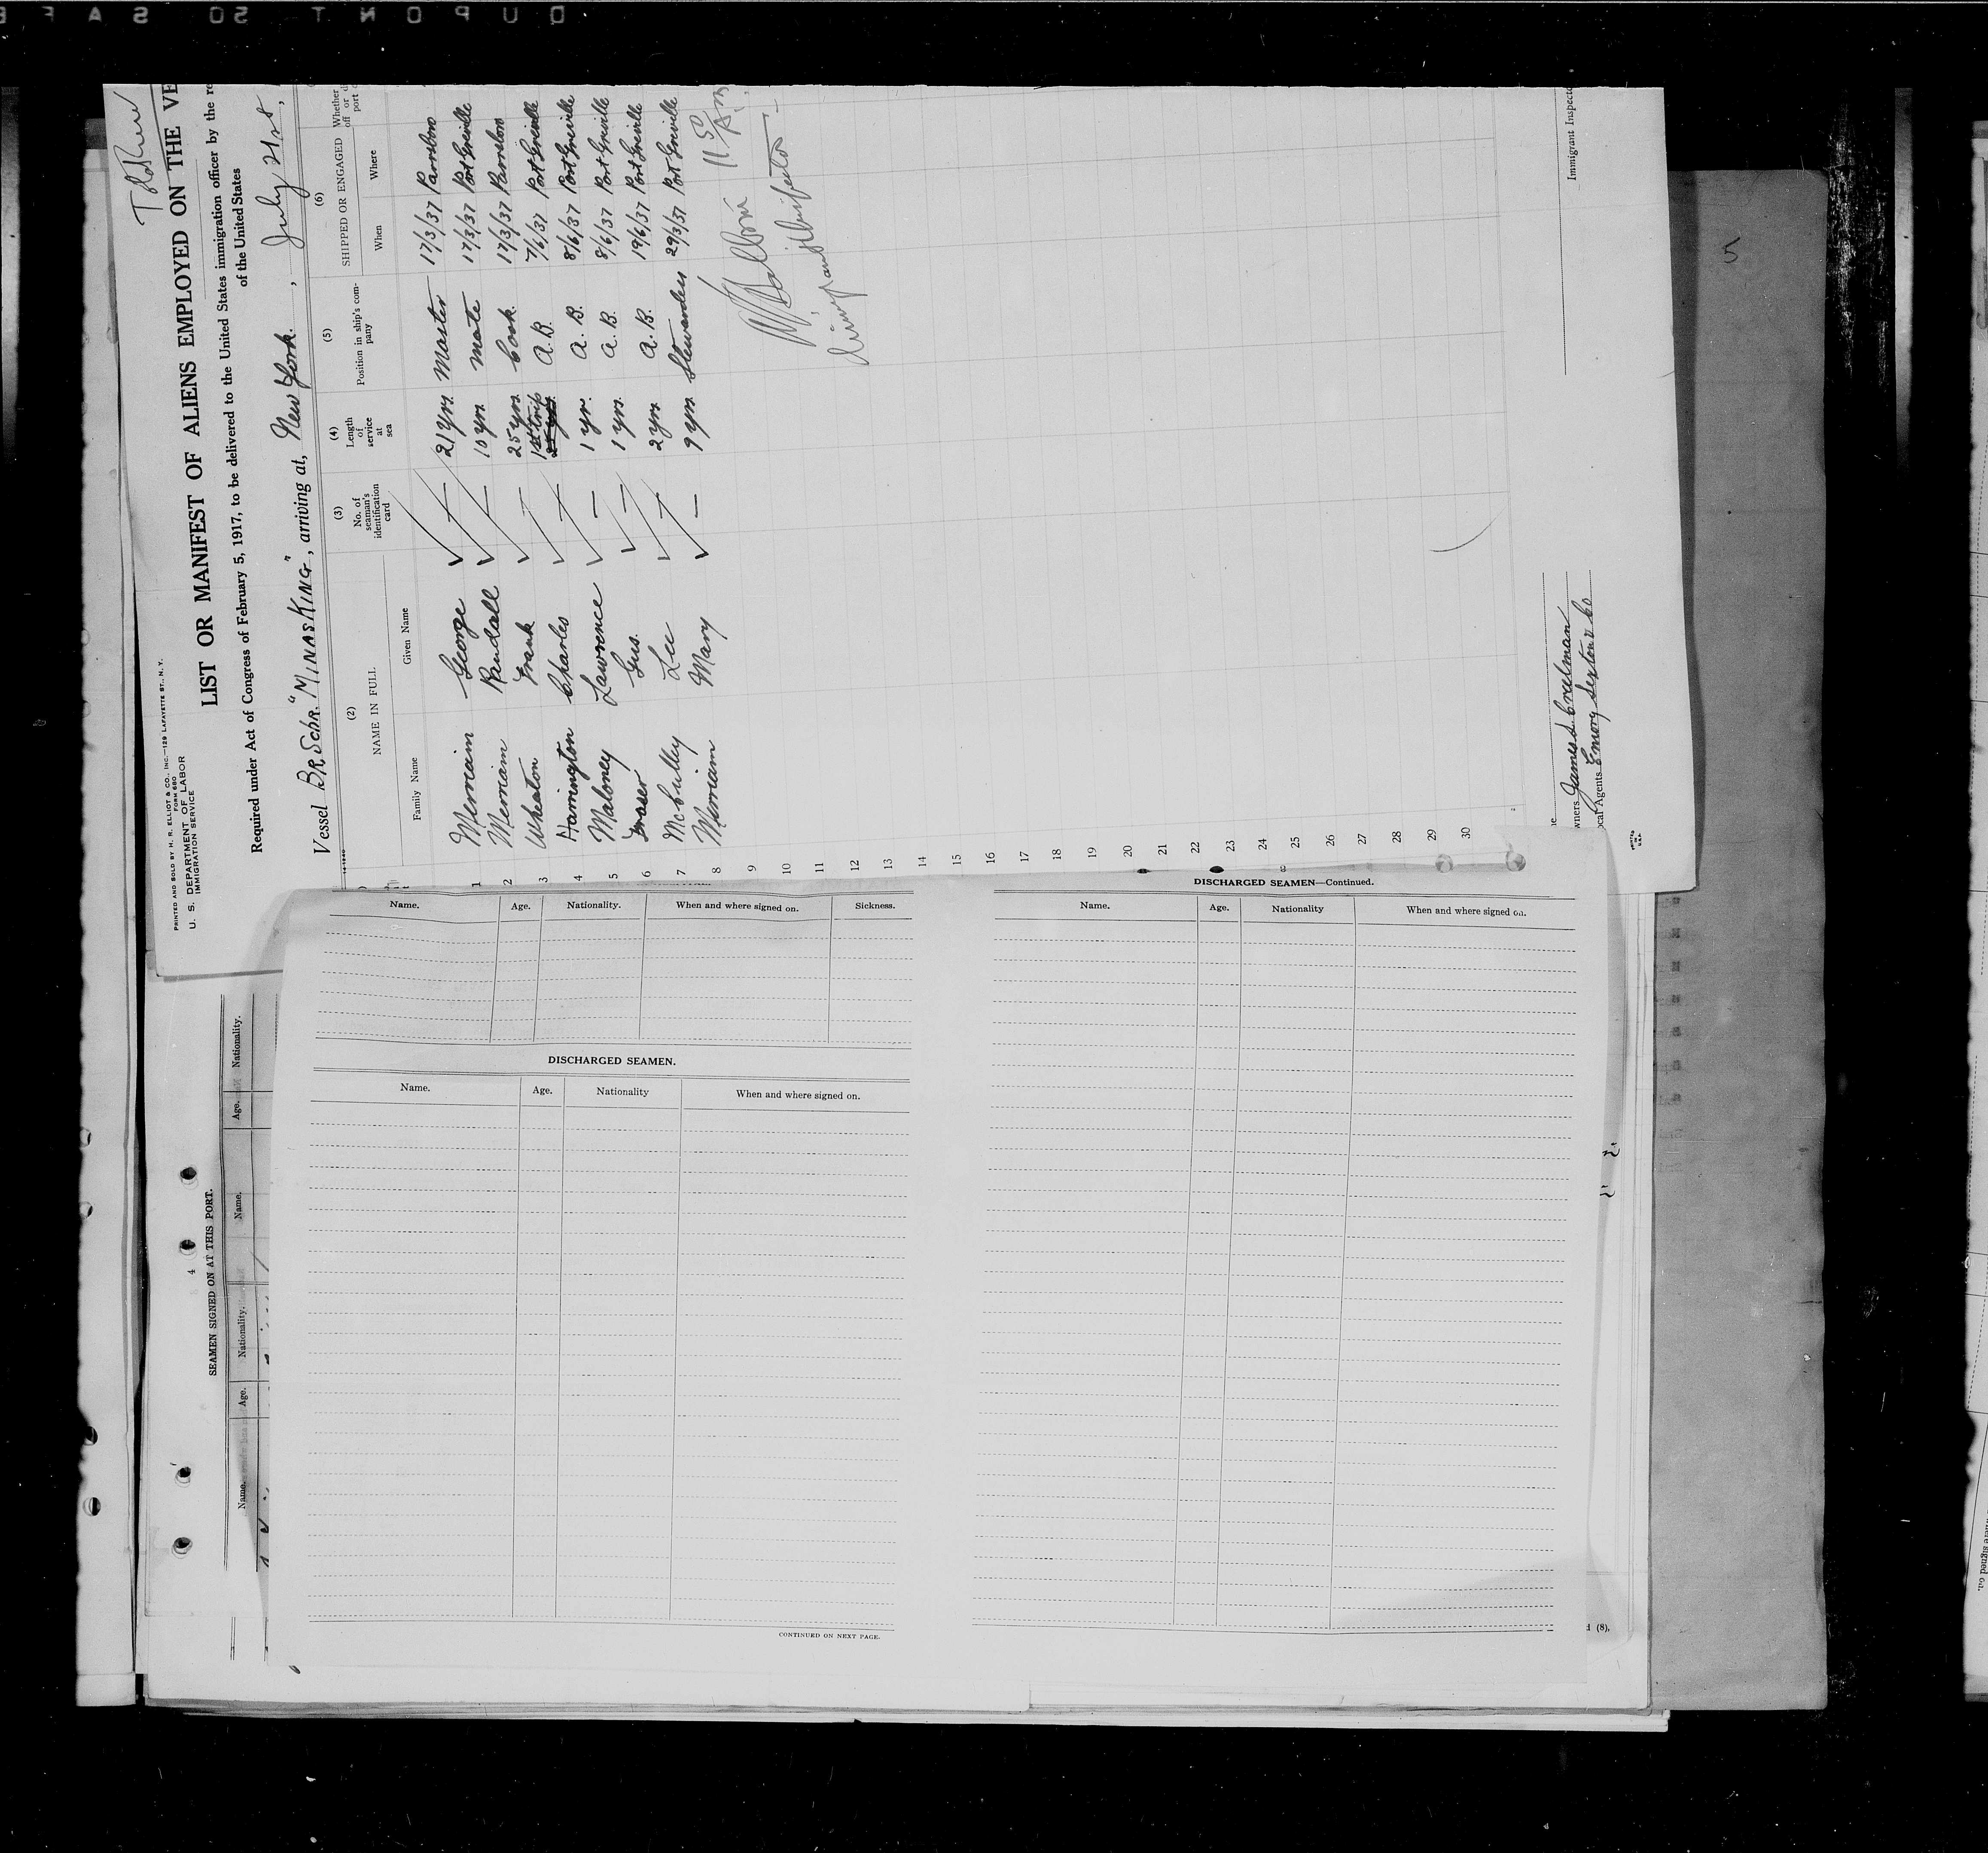 PRINTED AND SOLD BY H. R. ELLIOT & CO., INC.—129 LAFAYETTE ST., N. Y.
FORM 680
U. S. DEPARTMENT OF LABOR
IMMIGRATION SERVICE
LIST OR MANIFEST OF ALIENS EMPLOYED ON THE VE
Required under Act of Congress of February 5, 1917, to be delivered to the United States immigration officer by the re
of the United States
Vessel BR. SCHR. "MINAS KING", arriving at, New York. , July 21st,
(2) (3) (4) (5) (6)
NAME IN FULL No. of seaman's identification card Length of service at sea Position in ship's company SHIPPED OR ENGAGED Whether
Family Name Given Name When Where
1 Merriam George 21 yrs. Master 17/3/37 Parrsboro
2 Merriam Randall 10 yrs. Mate 17/3/37 Port Greville
3 Wheaton Frank 25 yrs. Cook. 17/3/37 Parrsboro
4 Harrington Charles 1st trip A. B. 7/6/37 Port Greville
5 Maloney Lawrence — 1 yr. A. B. 8/6/37 Port Greville
6 Fraser Gus. — 1 yrs. A. B. 8/6/37 Port Greville
7 McCulley Lee 2 yrs. A. B. 19/6/37 Port Greville
8 Merriam Mary — 9 yrs. Stewardess 29/3/37 Port Greville
9
10
11
12
13
14
15
16
17
18
19
20
21
22
23
24
25
26
27
28
29
30
11 50 AM
Immigrant Inspecto
wners James S. Creelman
ocal Agents Emory Sexton & Co
Name. Age. Nationality. When and where signed on. Sickness.
DISCHARGED SEAMEN.
Name. Age. Nationality When and where signed on.
CONTINUED ON NEXT PAGE.
DISCHARGED SEAMEN—Continued.
Name. Age. Nationality When and where signed on.
4
SEAMEN SIGNED ON AT THIS PORT.
Name. Age. Nationality. Name. Age. Nationality.
(8).
5